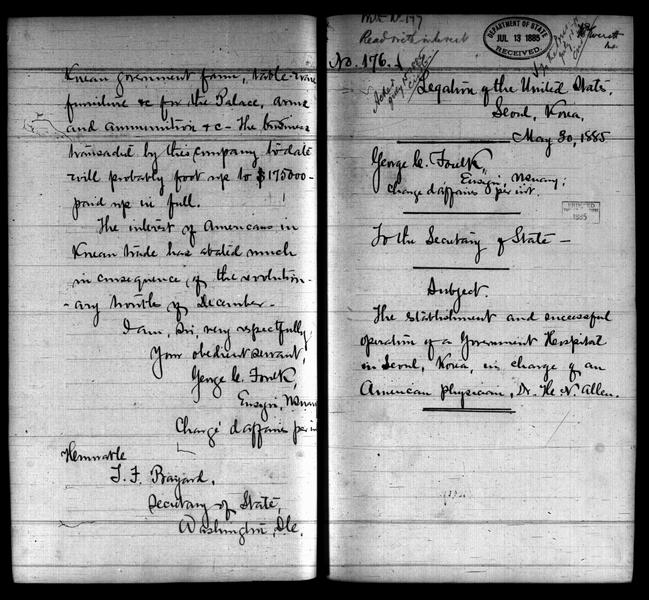 Korean government farm, table-ware
furniture &c for the Palace, arms
and ammunition &c - The business
transacted by this company to date
will probably foot up to $175000-
paid up in full.
The interest of Americans in
Korean trade has abated much
in consequence of the revolution-
-ary trouble of December.
I am, Sir, very respectfully
Your obedient servant,
George C. Foulk,
Ensign,
Chargé d'affaires
Honorable
T. F. Bayard,
Secretary of State,
Washington, D.C.
Read with interest
DEPARTMENT OF STATE
JUL 13 1885
RECEIVED
No. 176.
Legation of the United States,
Seoul, Korea,
May 30, 1885
George C. Foulk,
Ensign, U.S. Navy;
Chargé d'affaires per int.
1885
To the Secretary of State -
Subject.
The establishment and successful
operation of a Government Hospital
in Seoul, Korea, in charge of an
American physician, Dr. H. N. Allen.